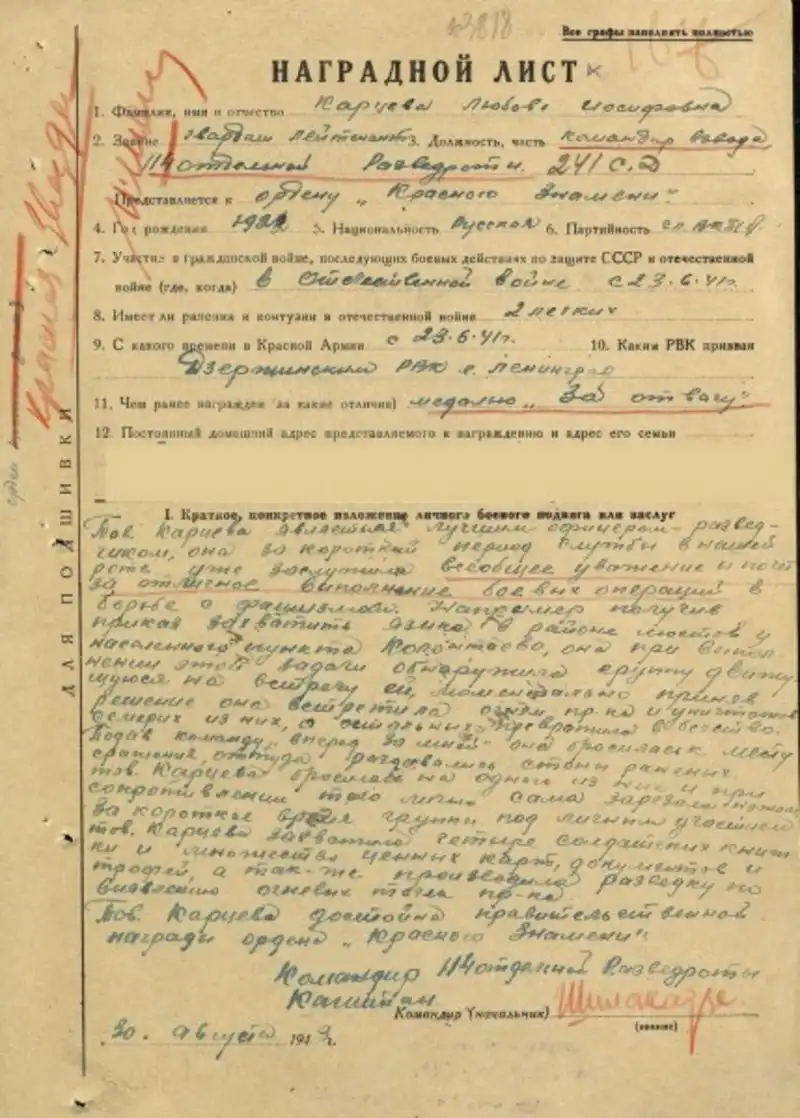 Все графы заполнять полностью
НАГРАДНОЙ ЛИСТ
1. Фамилия, имя и отчество Карцева Любовь Иосифовна
2. Звание Гвардии лейтенант 3. Должность, часть командир взвода
114 отдельной Разведроты 241 С.Д
Представляется к ордену „Красного Знамени"
4. Год рождения 1922 5. Национальность Русская 6. Партийность
7. Участие в гражданской войне, последующих боевых действиях по защите СССР и отечественной
войне (где, когда) в Отечественной войне с 23.6.41г.
8. Имеет ли ранения и контузии в отечественной войне 2 легких
9. С какого времени в Красной Армии с 23.6.41г. 10. Каким РВК призван
Дзержинским РВК г. Ленинград
11. Чем ранее награжден (за какие отличия) медалью „За отвагу"
12. Постоянный домашний адрес представляемого к награждению и адрес его семьи
I. Краткое, конкретное изложение личного боевого подвига или заслуг
Тов. Карцева является лучшим офицером-развед-
чиком, она за короткий период службы в нашей
роте уже заслужила всеобщее уважение и почет
за отличное выполнение боевых операций в
борьбе с фашизмом. Например получив
приказ захватить языка в районе мостов у
населенного пункта она при выпол-
нении этой задачи обнаружила группу движу-
щуюся на встречу ей, моментально приняв
решение она встретила огнём пр-ка и уничтожив
семерых из них, а остальных превратила в бегство.
Подав команду „вперед за мной" она бросилась к месту
сражения, откуда раздавались стоны раненых
тов. Карцева бросилась на одного из них и при
сопротивлении того сама зарезала
За короткое время группа под личным участием
тов. Карцева захватила четыре солдатских книж
ки и множество ценных карт, документов и
трофей, а так-же производила разведку по
выявлению огневых точек пр-ка.
Тов. Карцева достойна правительственной
награды ордена „Красного Знамени"
Командир 114 отдельной Разведроты
Капитан
Командир (начальник)
(звание)
30. Августа 1943г.
ДЛЯ ПОДШИВКИ
орден
Красная Звезда